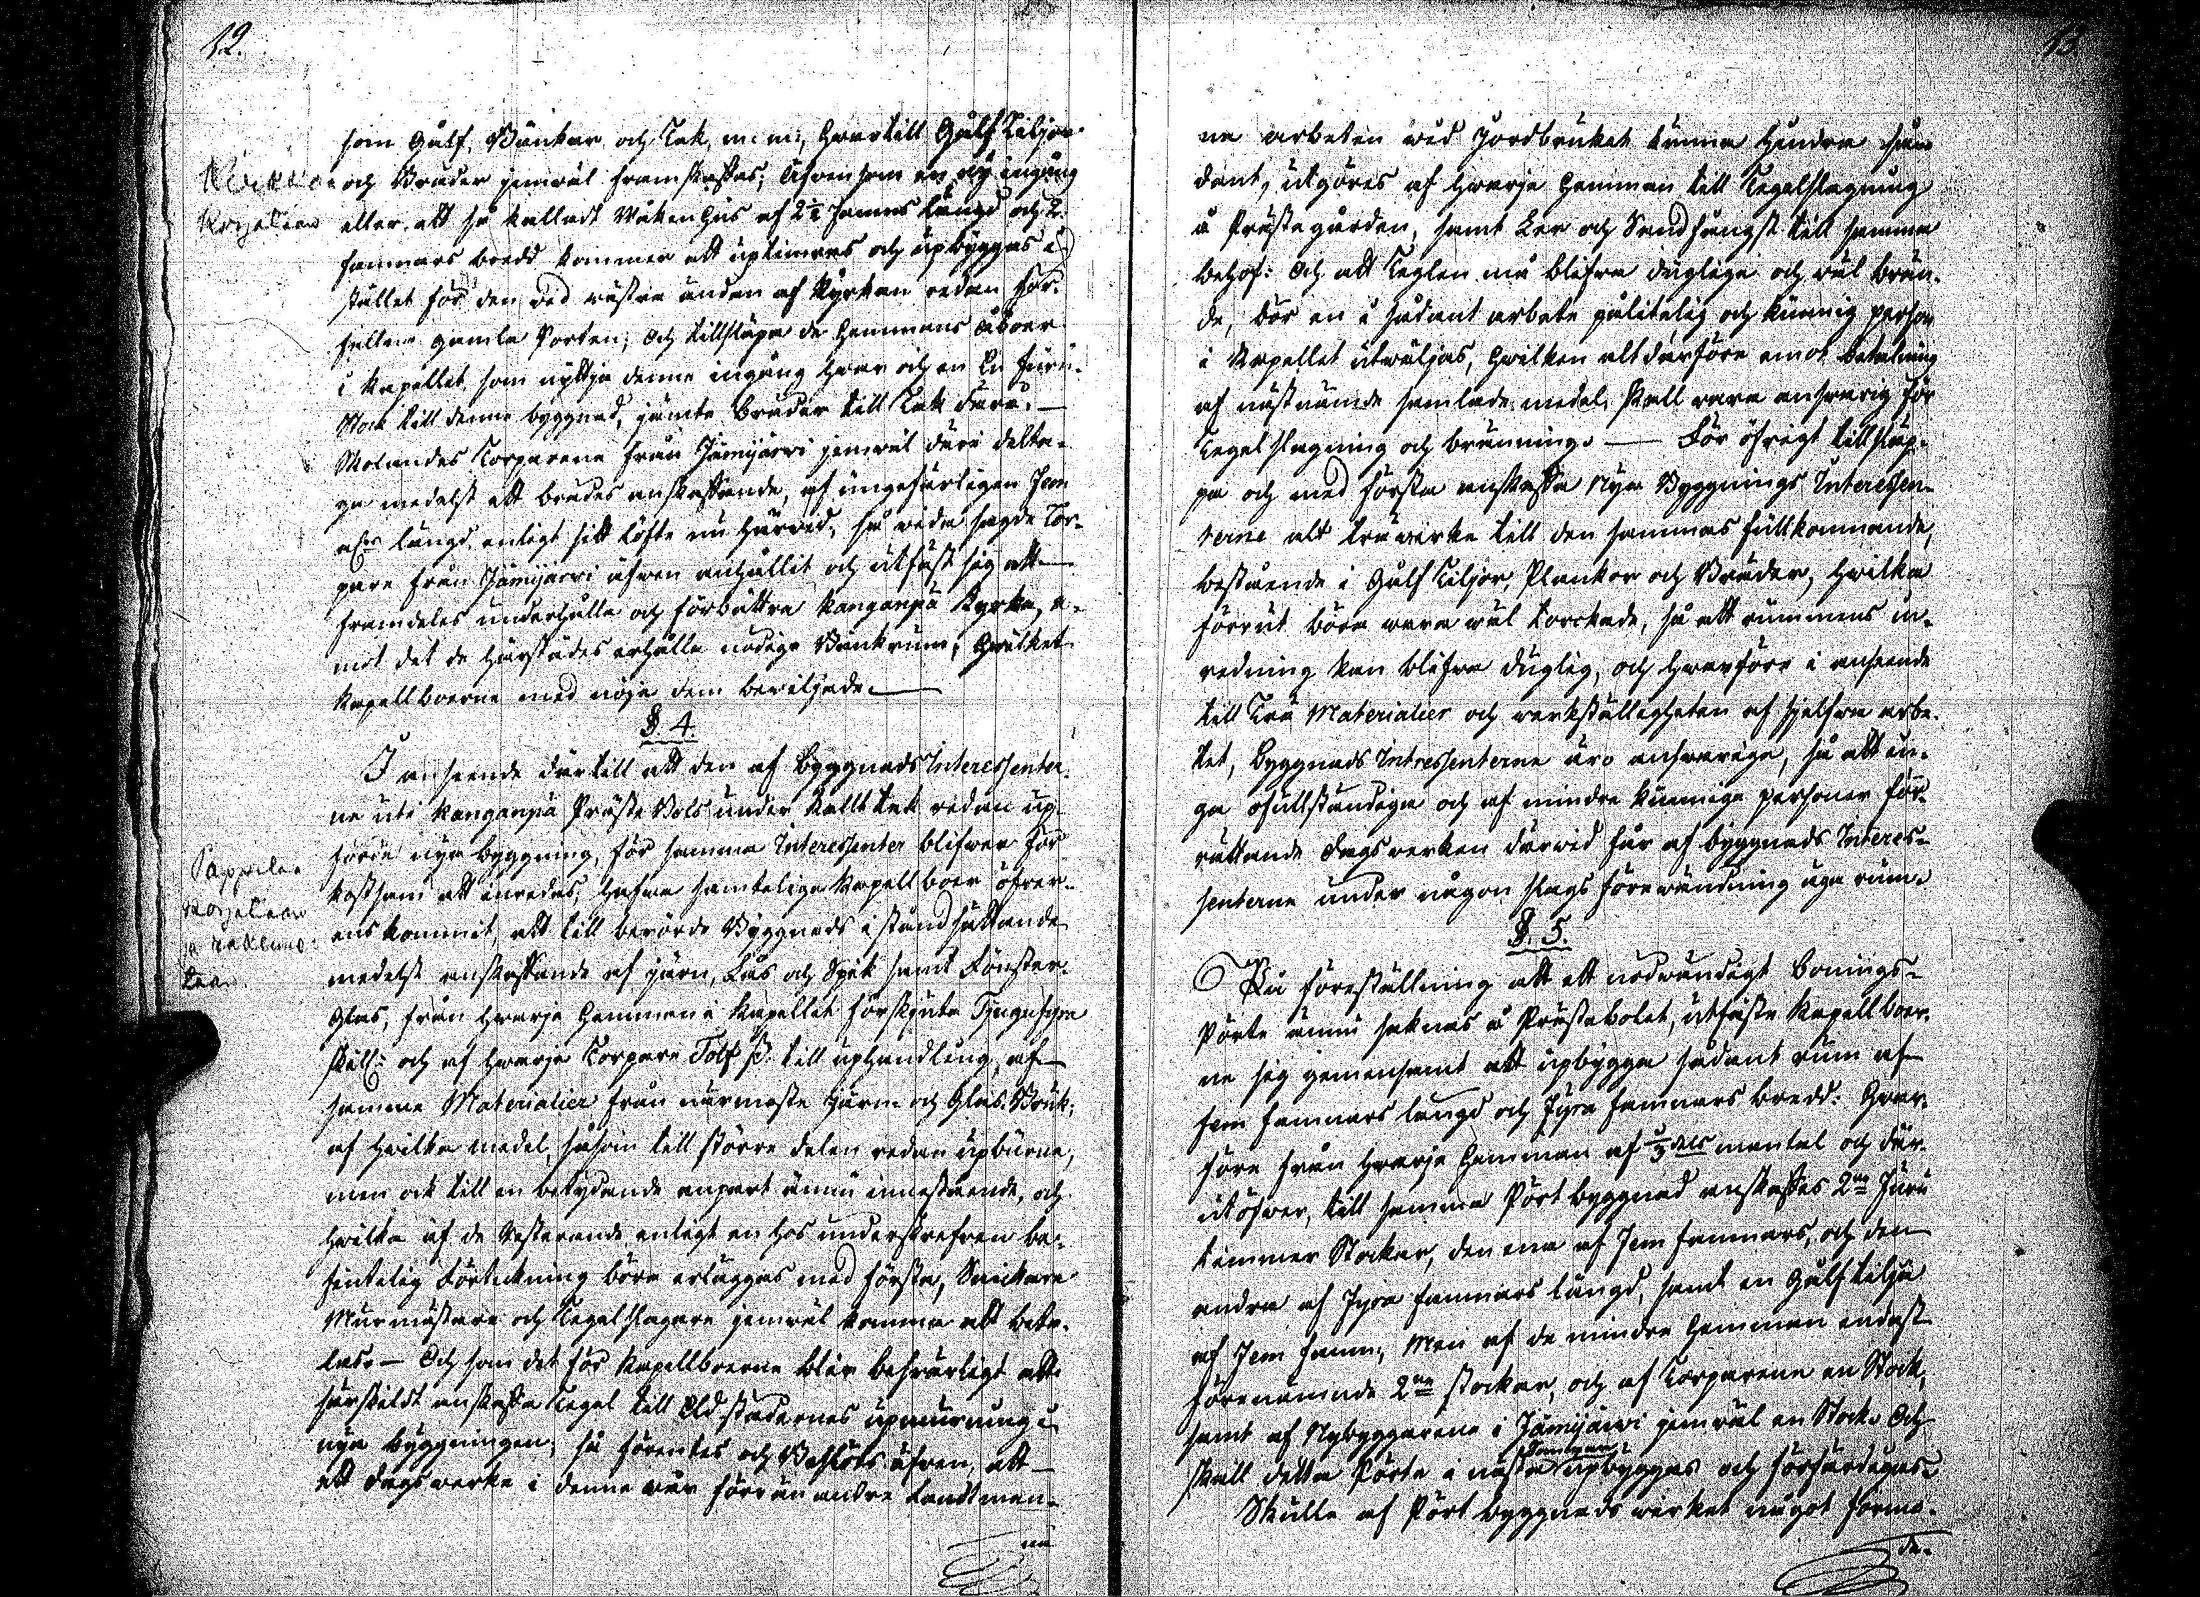 12.
som Gålf, Bänkar och Tak, m: m:, hwartill Gålf Tiljor
och Bräder jemwäl framskaffas; Äfven som en ny ingång
eller ett så kalladt Waken hus af 2½ famns längd och 2
famnars bredd kommer att uptimras och upbyggas i
stället för den wid wästra ändan af Kyrkan redan för-
fallna gamla Porten; och tillsläpa de Hemmans Åboer
i Kapellet som nyttja denna ingång hwar och en En furu-
Stock till denna byggnad, jämte bräder till Tak därå. —
Molandes Torparena från Jämijärvi jemwäl däri delta-
ga medelst ett brädes anskaffande, af ungefärligen fem
alnrs längd, enligt sitt löfte nu härwid; så wida sagde Tor-
pare från Jämijärvi äfwen anhållit och utfäst sig att
framdeles underhålla och förbättra Kanganpä Kyrka, e-
mot det de härstädes erhålla nödiga Bänkrum; hwilket
Kapellboerne med nöje dem beviljade. —
Kirkkoa
Korjataan
§. 4.
I anseende därtill att den af Byggnads Interessenter-
ne uti Kanganpä Präste Bols under kallt tak redan up-
förde nya byggning, för samma Interessenter blifwer för
kostsam att inredas; hafwa samtelige Kapellboer öfwer-
enskommit, att till berörde Byggnads i stånd sättande
medelst anskaffande af järn, Lås och Spik samt Fönster-
Glas, från hwarje Hemman i Kapellet förskjuta Tjugufyra
skill: och af hwarje Torpare Tolf s. till uphandling af
samma Materialier från närmaste Järn- och Glas-Bruk;
af hwilka medel, såsom till större delen redan upburne,
men ock till en betydande anpart ännu innestående, och
hwilka af de Resterande enligt en hos underskrefwen be-
fintelig Förtekning böra erläggas med första, Snickare
Murmästare och Tegelslagare jemwäl komma att beta-
las. — Och som det för Kapellboerne blir beswärligt att
särskildt anskaffa Tegel till Eldstädernes upmurning i
nya byggningen, så förentes och Beslöts äfwen, att
ett dagswerke i denna wår förrän andra Landtman-
na
Pappilaa
korjataan
ja rakenne-
taan.
13.
na arbeten wid Jordbruket kunna hindra såw
dant, utgöres af hwarje Hemman till Tegelslagning
å Prästegården, samt Ler och Sandfångst till samma
behof: Och att Teglen må blifwa duglige och wäl brän-
de, bör en i sådant arbete pålitelig och kunnig person
i Kapellet utwäljas, hwilken altdärföre emot betalning
af nästnämde samlade medel, skall vara answarig för
Tegelslagning och bränning. — För öfrigt tillsläp-
pa och med första anskaffa Nya Byggnings Interessen-
terne alt träwirke till den sammas fullkommande,
bestående i Gålf Tiljor, Plankor och Bräder, hwilka
förrut böra wara wäl torckade, så att rummens in-
redning kan blifwa duglig, och hwarföre i anseende
till Trä Materialier och werkställigheten af sjelfwa arbe-
tet, Byggnads Intressenterne äro answarige, så att in-
ga ofullständiga och af mindre kunnige personer för-
rättande dagswerken därwid får af byggnads Interes-
senterne under någon slags förewändning äga rum.
§. 5.
På föreställning att ett nödwändigt Bonings-
Pörte ännu saknas å Prästebolet, utfäste Kapellboer-
ne sig gemensamt att upbygga sådant rum af
fem famnars längd och fyra famnars bredd: hwar-
före från hwarje Hemman af ⅓ dels mantal och där-
utöfwer, till samma Pört byggnad anskaffes 2ne furu
timmer Stockar, den ena af fem famnars, och den
andra af fyra famnars längd, samt en Gålftilja
af fem famn; Men af de mindre Hemman endast
förenämnde 2ne stockar, och af Torparena en Stock,
samt af Nybyggarena i Jämijärvi jemwäl en Stock. Och
skall detta Pörte i nästa upbyggas och förfärdigas.
Skulle af Pört byggnads wirket något förme-
da-